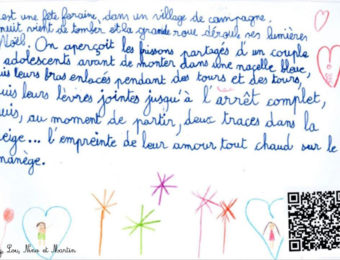 est une fête foraine, dans un village de campagne.
nuit vient de tomber et la grande roue déroule ses lumières
Noël. On aperçoit les frissons partagés d'un couple
adolescents avant de monter dans une nacelle bleue,
uis leurs bras enlacés pendant des tours et des tours,
uis leurs lèvres jointes jusqu'à l'arrêt complet,
uis, au moment de partir, deux traces dans la
eige... l'empreinte de leur amour tout chaud sur le
manège.
Lou, Nino et Martin